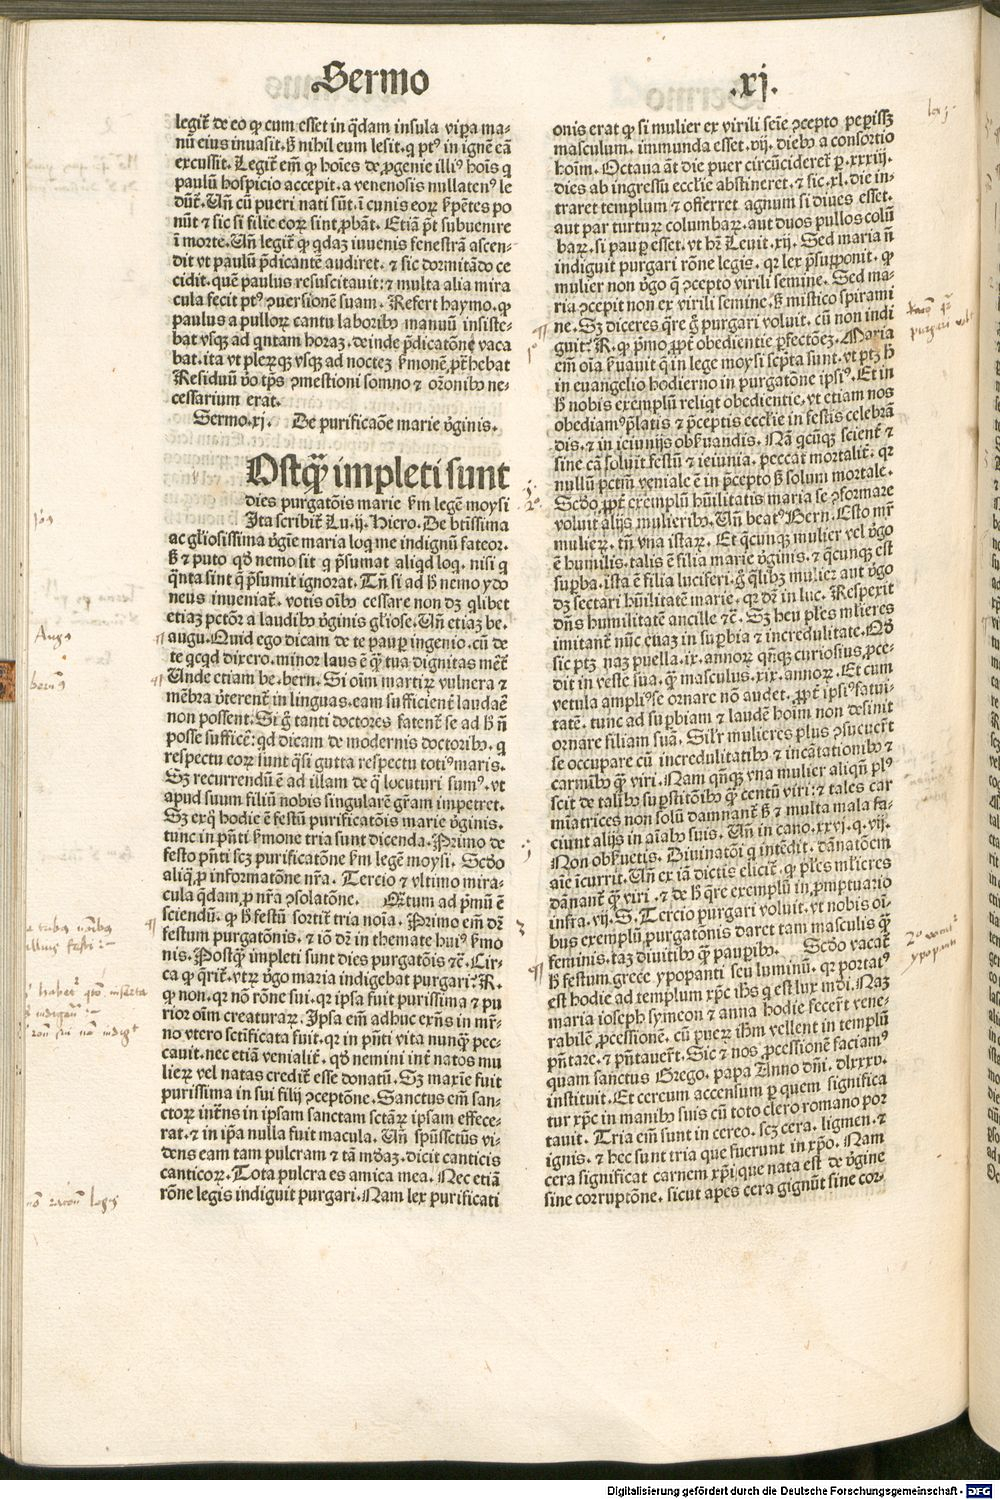 Sermo .xj.
legit̄ de eo ꝙ cum esset in q̄dam insula vip̲a ma-
nū eius inuasit. ß nihil eum lesit. q ptꝰ in ignē eā
excussit. Legit̄ em̄ ꝙ hoīes de ꝓgenie illiꝰ hoīs q
paulū hospicio accepit. a venenosis nullatenꝰ le
dūt̄. Vn̄ cū pueri nati sūt. ī cunis eoꝝ ẜpētes po
nūt ⁊ sic si filie eoꝝ sint ꝓbāt. Etiā p̄t subuenire
ī morte. Vn̄ legit̄ ꝙ qdaꝫ iuuenis fenestrā ascen-
dit vt paulū p̄dicantē audiret. ⁊ sic dormitādo ce
cidit. quē paulus resuscitauit: ⁊ multa alia mira
cula fecit ptꝰ ꝯuersionē suam. Refert haymo. ꝙ
paulus a pulloꝝ cantu laboribꝰ manuū insiste-
bat vsqꝫ ad qntam horaꝫ. deinde p̄dicatōne vaca
bat. ita vt pleꝝqꝫ vsqꝫ ad nocteꝫ ẜmonē ꝓt̄hebat
Residuū v̄o tp̄s ꝯmestioni somno ⁊ or̄onibꝰ ne-
cessarium erat.
Sermo.xj. De purificaōe marie v̄ginis.
Ostqꝫ̄ impleti sunt
dies purgatōis marie ẜm legē moysi
Ita scribit̄ Lu.ij. Hiero. De btīssima
ac gliosissima v̄gīe maria loq me indignū fateor.
ß ⁊ puto qð nemo sit q p̄sumat aliqd loq. nisi q
q̄nta sint q̄ p̄sumit ignorat. Tn̄ si ad ß nemo ydo
neus inueniat̄. votis oībꝰ cessare non dꝫ qlibet
etiaꝫ pctōꝝ a laudibꝰ v̄ginis gl̄iose. Vn̄ etiaꝫ be.
augu. Quid ego dicam de te paup̲ ingenio. cū de
te qcqd dixero. minor laus ē qꝫ̄ tua dignitas mēt̄
Unde etiam be. bern. Si oīm martiꝝ vulnera ⁊
mēbra v̄terent̄ in linguas. eam sufficient̄ laudaē
non possent. Si g̊ tanti doctores fatent̄ se ad ß n̄
posse sufficē: qd dicam de modernis doctoribꝰ. q
respectu eoꝝ sunt q̄si gutta respectu totiꝰ maris.
Sꝫ recurrendū ē ad illam de q̄ locuturi sumꝰ. vt
apud suum filiū nobis singularē gr̄am impetret.
Sꝫ exq̊ hodie ē festū purificatōis marie v̄ginis.
tunc in p̄nti ẜmone tria sunt dicenda. Primo de
festo p̄nti scꝫ purificatōne ẜm legē moysi. Scðo
aliq̄ ꝓ informatōne nr̄a. Tercio ⁊ vltimo mira-
cula q̄dam ꝓ nr̄a ꝯsolatōne. Q̄tum ad p̄mū ē
sciendū. ꝙ ß festū sortit̄ tria noīa. Primo em̄ dr̄
festum purgatōnis. ⁊ iō dr̄ in themate huiꝰ ẜmo
nis. Postqꝫ̄ impleti sunt dies purgatōis ⁊c̄. Cir-
ca ꝙ q̄rit̄. vtꝝ v̄go maria indigebat purgari: R̷.
ꝙ non. qꝛ nō rōne sui. qꝛ ipsa fuit purissima ⁊ pu
rior oīm creaturaꝝ. Ipsa em̄ adhuc exn̄s in mr̄-
no vtero sctīficata fuit. qꝛ in p̄nti vita nunqꝫ̄ pec-
cauit. nec etiā venialit̄. qð nemini int̄ natos mu
lieꝝ vel natas credit̄ esse donatū. Sꝫ maxīe fuit
purissima in sui filij ꝯceptōne. Sanctus em̄ san-
ctoꝝ int̄n̄s in ipsam sanctam sctāꝝ ipsam effece-
rat. ⁊ in ip̄a nulla fuit macula. Vn̄ spūssctūs vi-
dens eam tam pulcram ⁊ tā mūdaꝫ. dicit canticis
canticoꝝ. Tota pulcra es amica mea. Nec etiā
rōne legis indiguit purgari. Nam lex purificati
onis erat ꝙ si mulier ex virili seīe ꝯcepto pep̲issꝫ
masculum. immunda esset .vij. diebꝰ a consortio
hoīm. Octaua āt die puer circūcideret̄ ꝑ .xxxiij.
dies ab ingressu eccl̄ie abstineret. ⁊ sic .xl. die in-
traret templum ⁊ offerret agnum si diues esset.
aut par turtuꝝ columbaꝝ. aut duos pullos colū
baꝝ. si paup̲ esset. vt hr̄ Leuit .xij. Sed maria n̄
indiguit purgari rōne legis. qꝛ lex p̄supponit. ꝙ
mulier non v̄go q̄ ꝯcepto virili semine. Sed ma-
ria ꝯcepit non ex virili semine. ß mistico spirami
ne. Sꝫ diceres q̄re g̊ purgari voluit. cū non indi
guit: R̷. ꝙ p̄mo ꝓpt̄ obedientie ꝑfectōeꝫ. Maria
em̄ oīa ẜuauit q̄ in lege moysi scp̄ta sunt. vt ptꝫ ß
in euangelio hodierno in purgatōne ipsiꝰ. Et in
ß nobis exemplū reliqt obedientie. vt etiam nos
obediamꝰ p̄latis ⁊ p̄ceptis eccl̄ie in festis celebrā
dis. ⁊ in ieiunijs obẜuandis. Nā qcūqꝫ scient̄ ⁊
sine cā soluit festū ⁊ ieiunia. peccat mortalit̄. qꝛ
nullū pctm̄ veniale ē in p̄cepto ß solum mortale.
Scðo ꝓpt̄ exemplū hūilitatis maria se ꝯformare
voluit alijs mulieribꝰ. Vn̄ beatꝰ Bern. Esto mr̄
mulieꝝ. tn̄ vna istaꝝ. Et q̄cunqꝫ mulier vel v̄go
ē humilis. talis ē filia marie v̄ginis. ⁊ q̄cunqꝫ est
sup̲ba. ista ē filia luciferi. g̊ q̄libꝫ mulier aut v̄go
dꝫ sectari hūilitatē marie. qꝛ dr̄ in luc. Respexit
dn̄s humilitatē ancille ⁊c̄. Sꝫ heu pl̄es ml̄ieres
imitant̄ nūc euaꝫ in sup̲bia ⁊ incredulitate. Qð
sic ptꝫ naꝫ puella .ix. annoꝝ qn̄qꝫ curiosiꝰ ꝓce-
dit in veste sua. qꝫ̄ masculus .xix. annoꝝ. Et cum
vetula ampliꝰ se ornare nō audet. ꝓpt̄ ipsiꝰ fatui-
tatē. tunc ad sup̲biam ⁊ laudē hoīm non desinit
ornare filiam suā. Sil̄r mulieres plus ꝯsueuer̄t
se occupare cū incredulitatibꝰ ⁊ incātationibꝰ ⁊
carmībꝰ qꝫ̄ viri. Nam qn̄qꝫ vna mulier aliqn̄ plꝰ
scit de talibꝰ sup̲stitōibꝰ qꝫ̄ centū viri: ⁊ tales car
mīatrices non solū damnant̄ ß ⁊ multa mala fa-
ciunt alijs in aīabꝰ suis. Vn̄ in cano .xxvj. q. vij.
Non obẜuetis. Diuinatōi q intēdit. dānatōem
aīe īcurrit. Vn̄ ex iā dictis elicit̄. ꝙ pl̄es ml̄ieres
dānant̄ qꝫ̄ viri. ⁊ de ß q̄re exemplū in ꝓmptuario
infra .vij. S. Tercio purgari voluit. vt nobis oī-
bus exemplū purgatōnis daret tam masculis qꝫ̄
feminis. taꝫ diuitibꝰ qꝫ̄ paup̲ibꝰ. Scðo vacat̄
ß festum grece ypopanti seu luminū. qꝛ portatꝰ
est hodie ad templum xp̄c ih̄s q est lux mūdi. Naꝫ
maria ioseph symeon ⁊ anna hodie fecer̄t vene-
rabilē ꝓcessionē. cū pueꝝ ih̄m vellent in templū
p̄ntare. ⁊ p̄ntauer̄t. Sic ⁊ nos ꝓcessionē faciamꝰ
quam sanctus Grego. papa Anno dn̄i. dlxxxv.
instituit. Et cereum accensum ꝑ quem significa
tur xp̄c in manibꝰ suis cū toto clero romano por
tauit. Tria em̄ sunt in cereo. scꝫ cera. ligmen. ⁊
ignis. ⁊ hec sunt tria que fuerunt in xp̄o. Nam
cera significat carnem xp̄i que nata est de v̄gine
sine corruptōne. sicut apes cera gignūt sine cor-
Augs
Digitalisierung gefördert durch die Deutsche Forschungsgemeinschaft - DFG